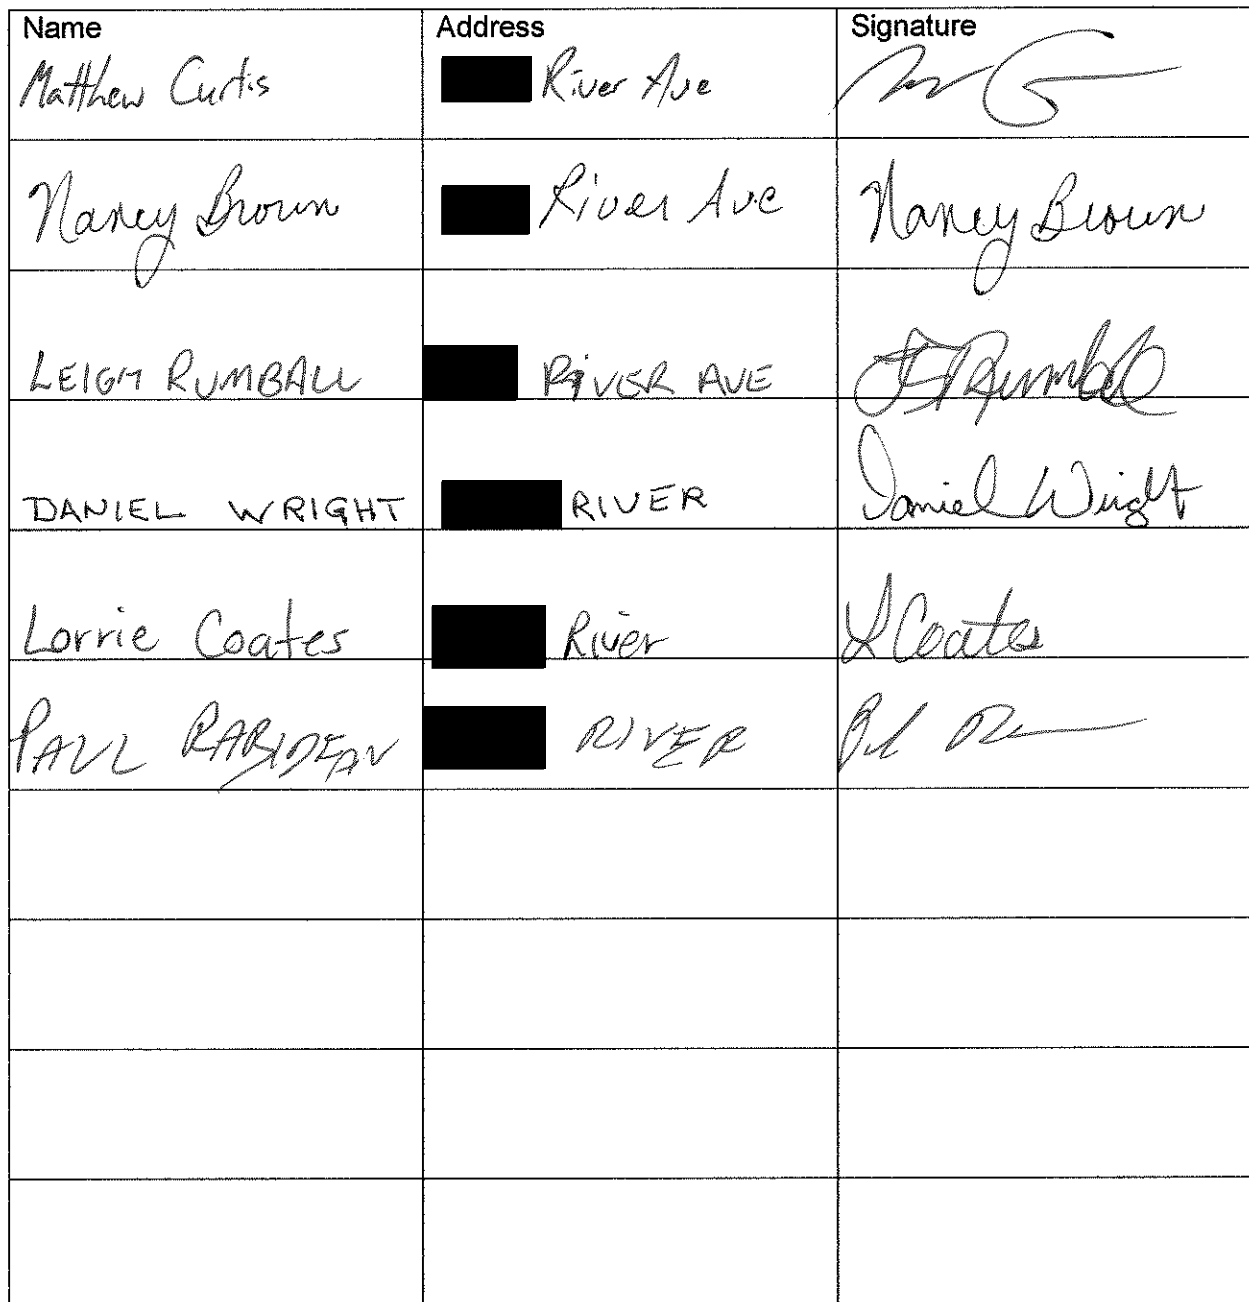 Name Address Signature
Matthew Curtis River Ave
Nancy Brown River Ave Nancy Brown
LEIGH RUMBALL RIVER AVE Rumball
DANIEL WRIGHT RIVER Daniel Wright
Lorrie Coates River L Coates
PAUL RABIDEAU RIVER